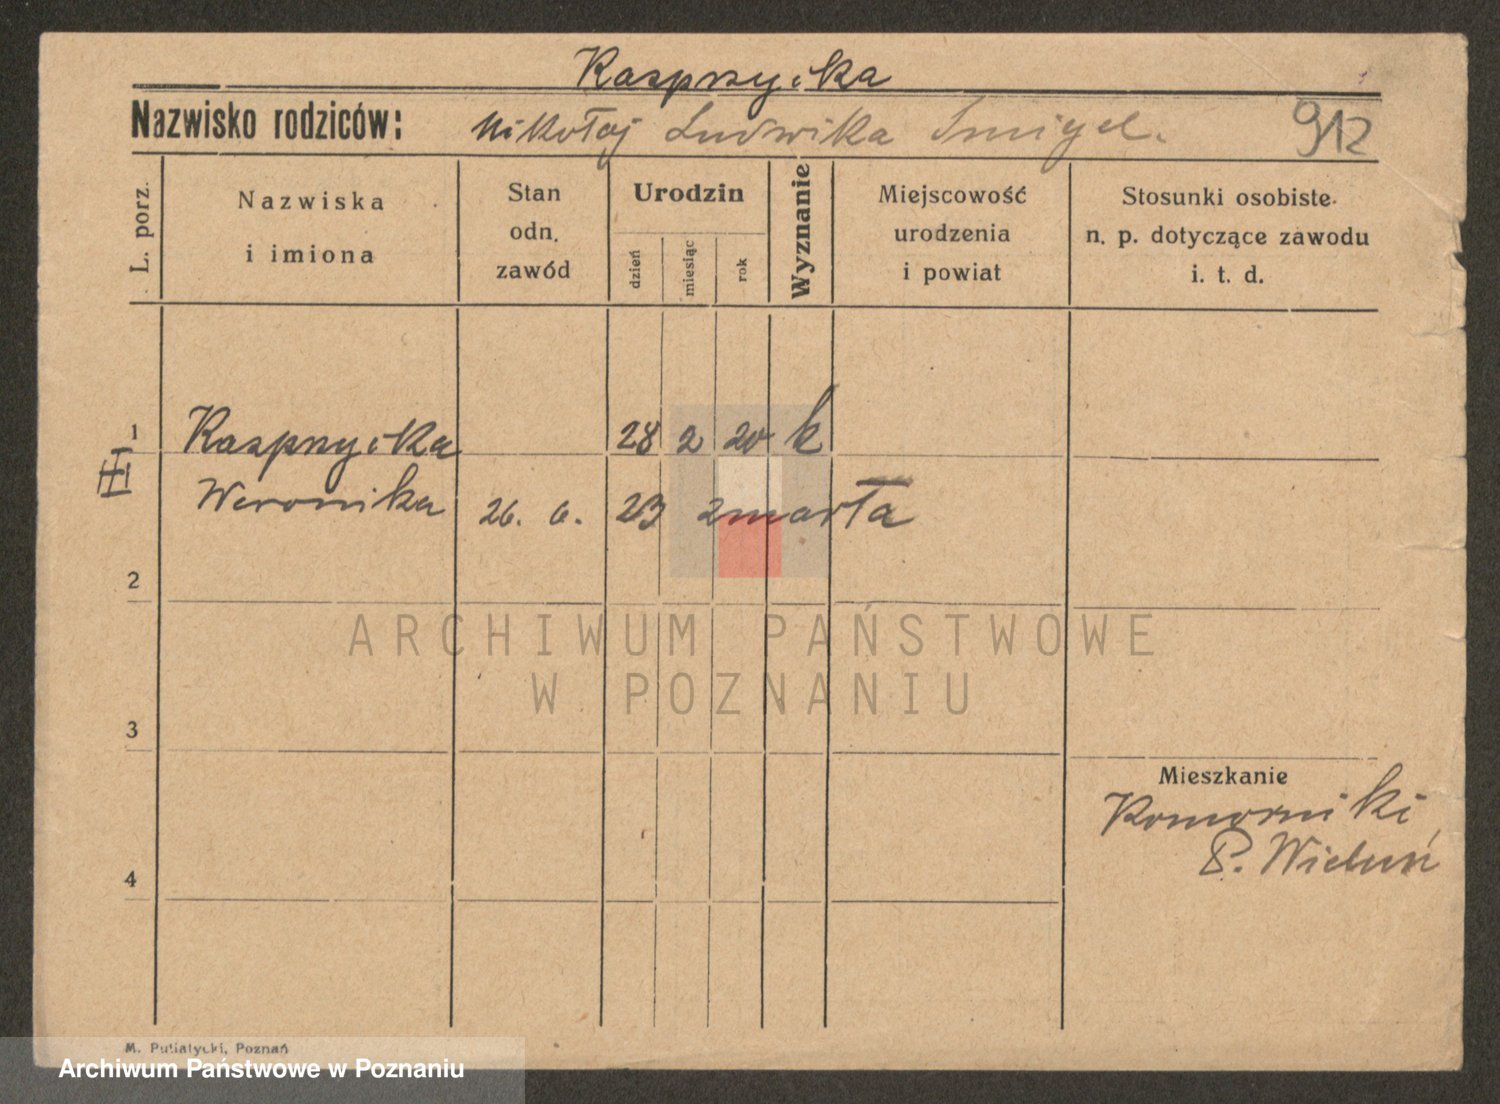 Kasprzycka
Nazwisko rodziców: Mikołaj Ludwika Smigel. 912
L. porz.
Nazwiska
i imiona
Stan
odn.
zawód
Urodzin
dzień
miesiąc
rok
Wyznanie
Miejscowość
urodzenia
i powiat
Stosunki osobiste
n. p. dotyczące zawodu
i. t. d.
1 Kasprzycka 28 2 20 k
III Weronika 26. 6. 23 zmarła
2
ARCHIWUM PAŃSTWOWE
W POZNANIU
3
Mieszkanie
Komorniki
P. Wieluń
4
M. Putiatycki, Poznań
Archiwum Państwowe w Poznaniu